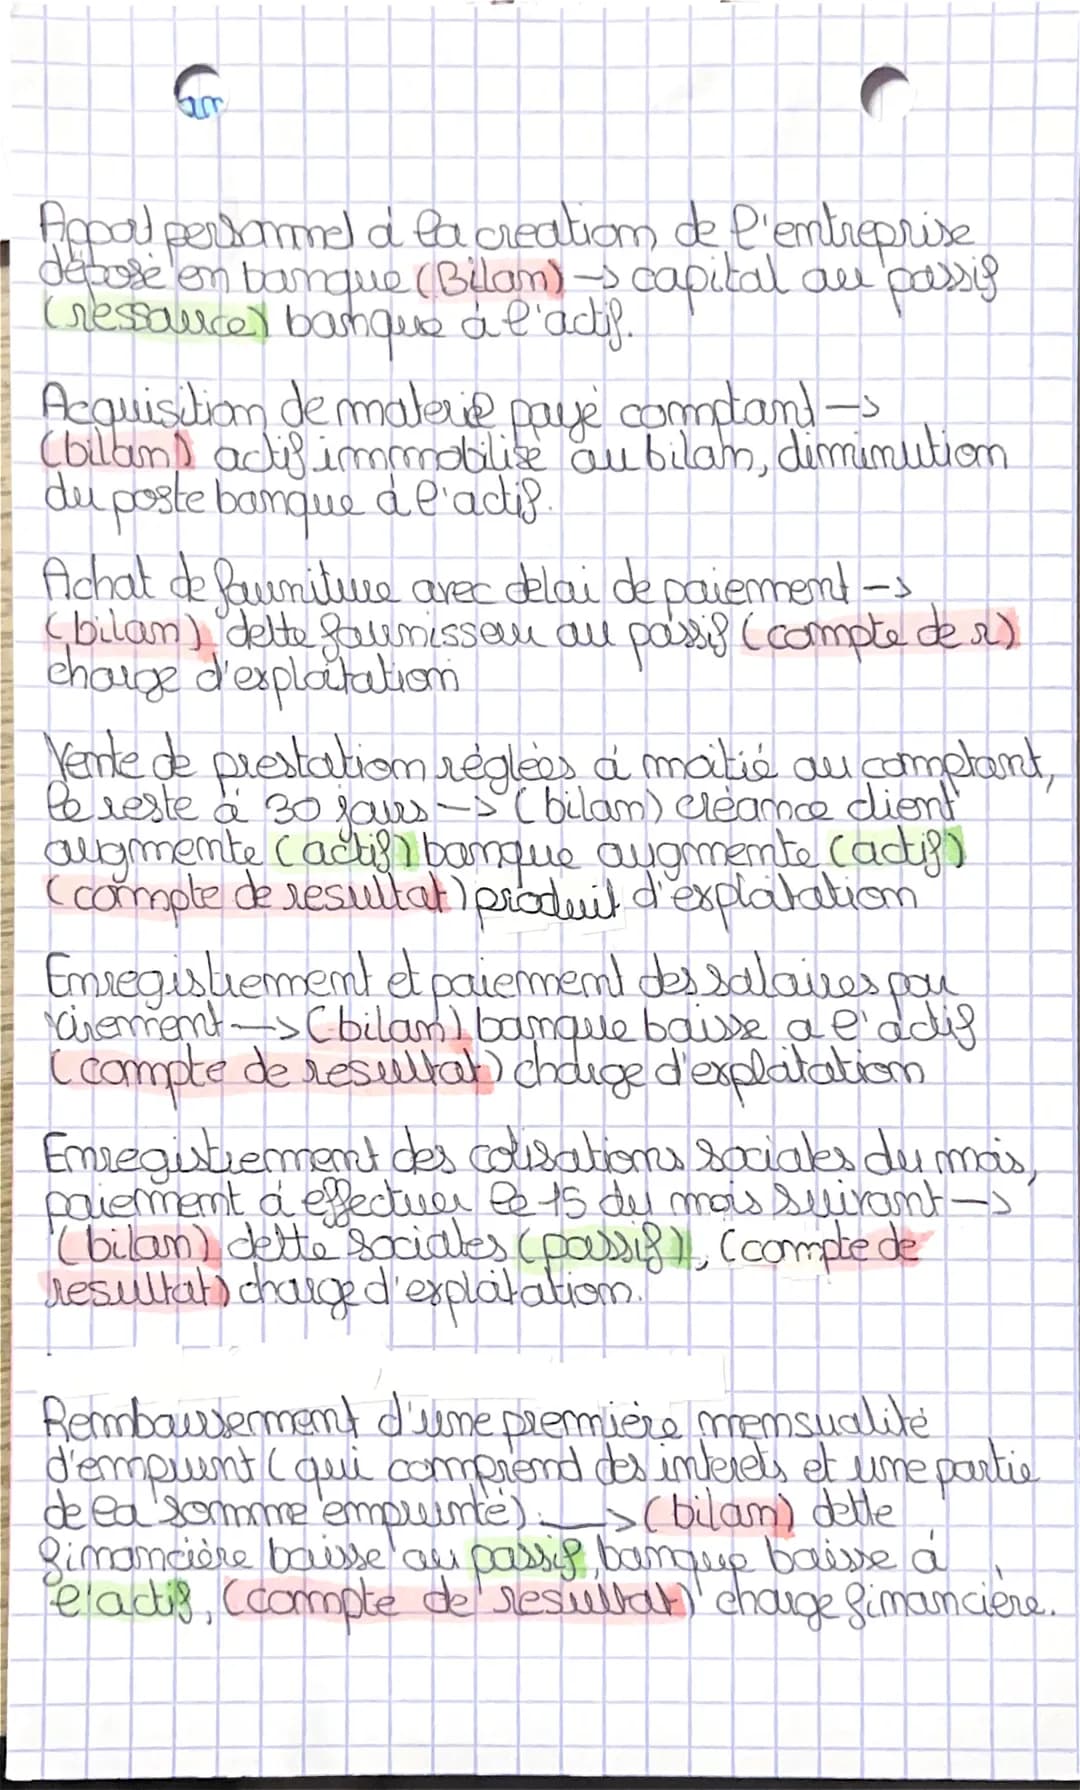 Apport personnel à la creation de l'entreprise
déposé en banque (Bilan) -> capital au passif
(ressource) banque à l'actif.
Acquisition de materiel payé comptant ->
(bilan) actif immobilisé au bilan, diminution
du poste banque à l'actif.
Achat de fourniture avec delai de paiement ->
(bilan) dette fournisseur au passif (compte de r)
charge d'exploitation
Vente de prestation réglées à moitié au comptant,
le reste à 30 jours -> (bilan) créance client
augmente (actif) banque augmente (actif)
(compte de resultat) produit d'exploitation
Enregistrement et paiement des salaires par
virement -> (bilan) banque baisse a l'actif
(compte de resultat) charge d'exploitation
Enregistrement des cotisations sociales du mois,
paiement à effectuer le 15 du mois suivant ->
(bilan) dette sociales (passif), (compte de
resultat) charge d'exploitation.
Remboursement d'une première mensualité
d'emprunt (qui comprend des interets et une partie
de la somme emprunté). -> (bilan) dette
financière baisse au passif, banque baisse à
l'actif, (compte de resultat) charge financière.